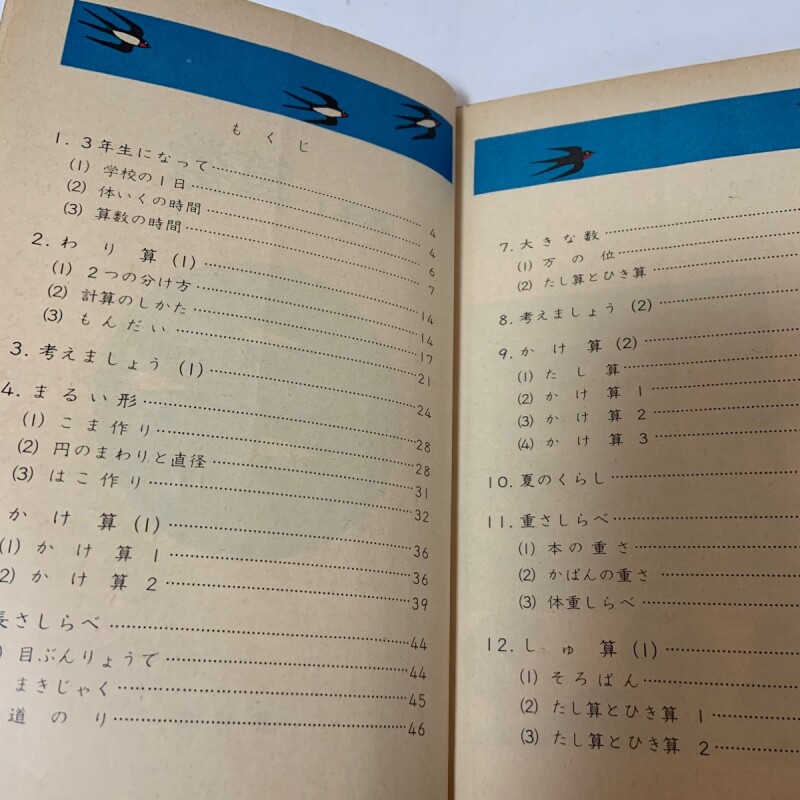 もくじ
1. 3年生になって……4
(1) 学校の1日……4
(2) 体いくの時間……6
(3) 算数の時間……7
2. わり算 (1)……14
(1) 2つの分け方……14
(2) 計算のしかた……17
(3) もんだい……21
3. 考えましょう (1)……24
4. まるい形……28
(1) こま作り……28
(2) 円のまわりと直径……31
(3) はこ作り……32
かけ算 (1)……36
(1) かけ算 1……36
2) かけ算 2……39
長さしらべ……44
) 目ぶんりょうで……44
まきじゃく……45
道のり……46
7. 大きな数……
(1) 万の位……
(2) たし算とひき算……
8. 考えましょう (2)……
9. かけ算 (2)……
(1) たし算……
(2) かけ算 1……
(3) かけ算 2……
(4) かけ算 3……
10. 夏のくらし……
11. 重さしらべ……
(1) 本の重さ……
(2) かばんの重さ……
(3) 体重しらべ……
12. しゅ算 (1)……
(1) そろばん……
(2) たし算とひき算 1……
(3) たし算とひき算 2……